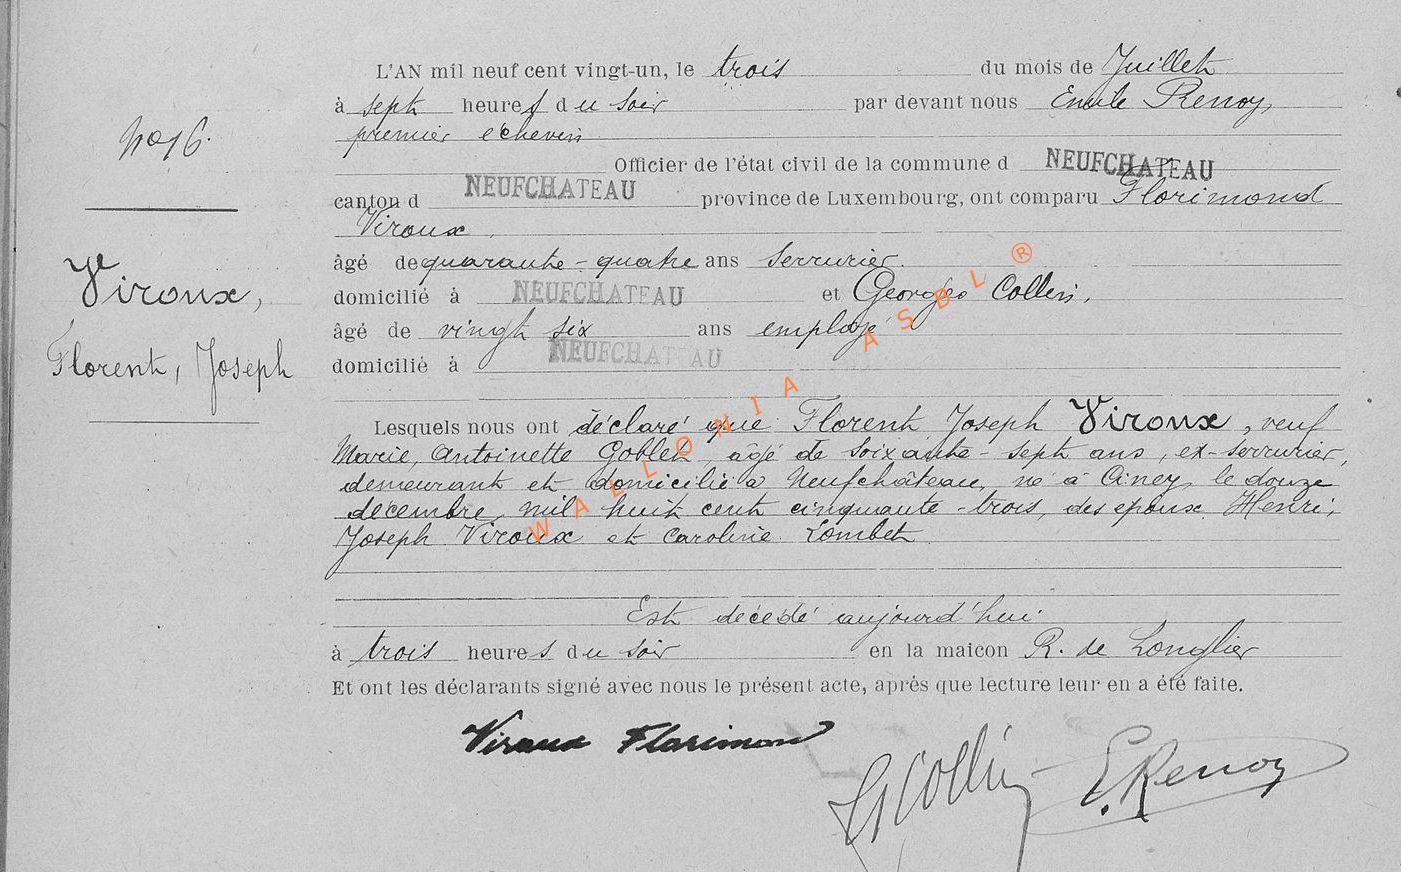 L'AN mil neuf cent vingt-un, le trois du mois de Juillet
à sept heures du soir par devant nous Emile Renoy,
premier échevin
Officier de l'état civil de la commune d NEUFCHATEAU
canton d NEUFCHATEAU province de Luxembourg, ont comparu Florimond
Viroux
âgé de quarante-quatre ans serrurier
domicilié à NEUFCHATEAU et Georges Collin,
âgé de vingt six ans employé
domicilié à NEUFCHATEAU
Lesquels nous ont déclaré que Florent Joseph Viroux, veuf
Marie, Antoinette Goblet âgé de soixante-sept ans, ex-serrurier,
demeurant et domicilié à Neufchâteau, né à Ciney, le douze
décembre mil huit cent cinquante-trois, des époux Henri,
Joseph Viroux et Caroline Lombet
Est décédé aujourd'hui
à trois heures du soir en la maicon R. de Longlier
Et ont les déclarants signé avec nous le présent acte, après que lecture leur en a été faite.
Viroux Florimond
G Collin
E. Renoy
No 16.
Viroux,
Florent, Joseph
WALLONIA ASBL ®